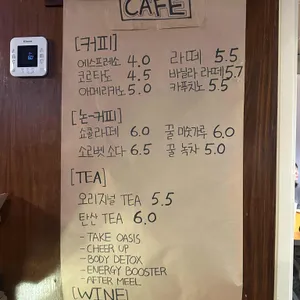 CAFE
[커피]
에스프레소 4.0 라떼 5.5
코르타도 4.5 바닐라 라떼 5.7
아메리카노 5.0 카푸치노 5.5
[논-커피]
쇼콜라떼 6.0 꿀 미숫가루 6.0
소르벳 소다 6.5 꿀 녹차 5.0
[TEA]
오리지널 TEA 5.5
탄산 TEA 6.0
- TAKE OASIS
- CHEER UP
- BODY DETOX
- ENERGY BOOSTER
- AFTER MEEL
[WINE]